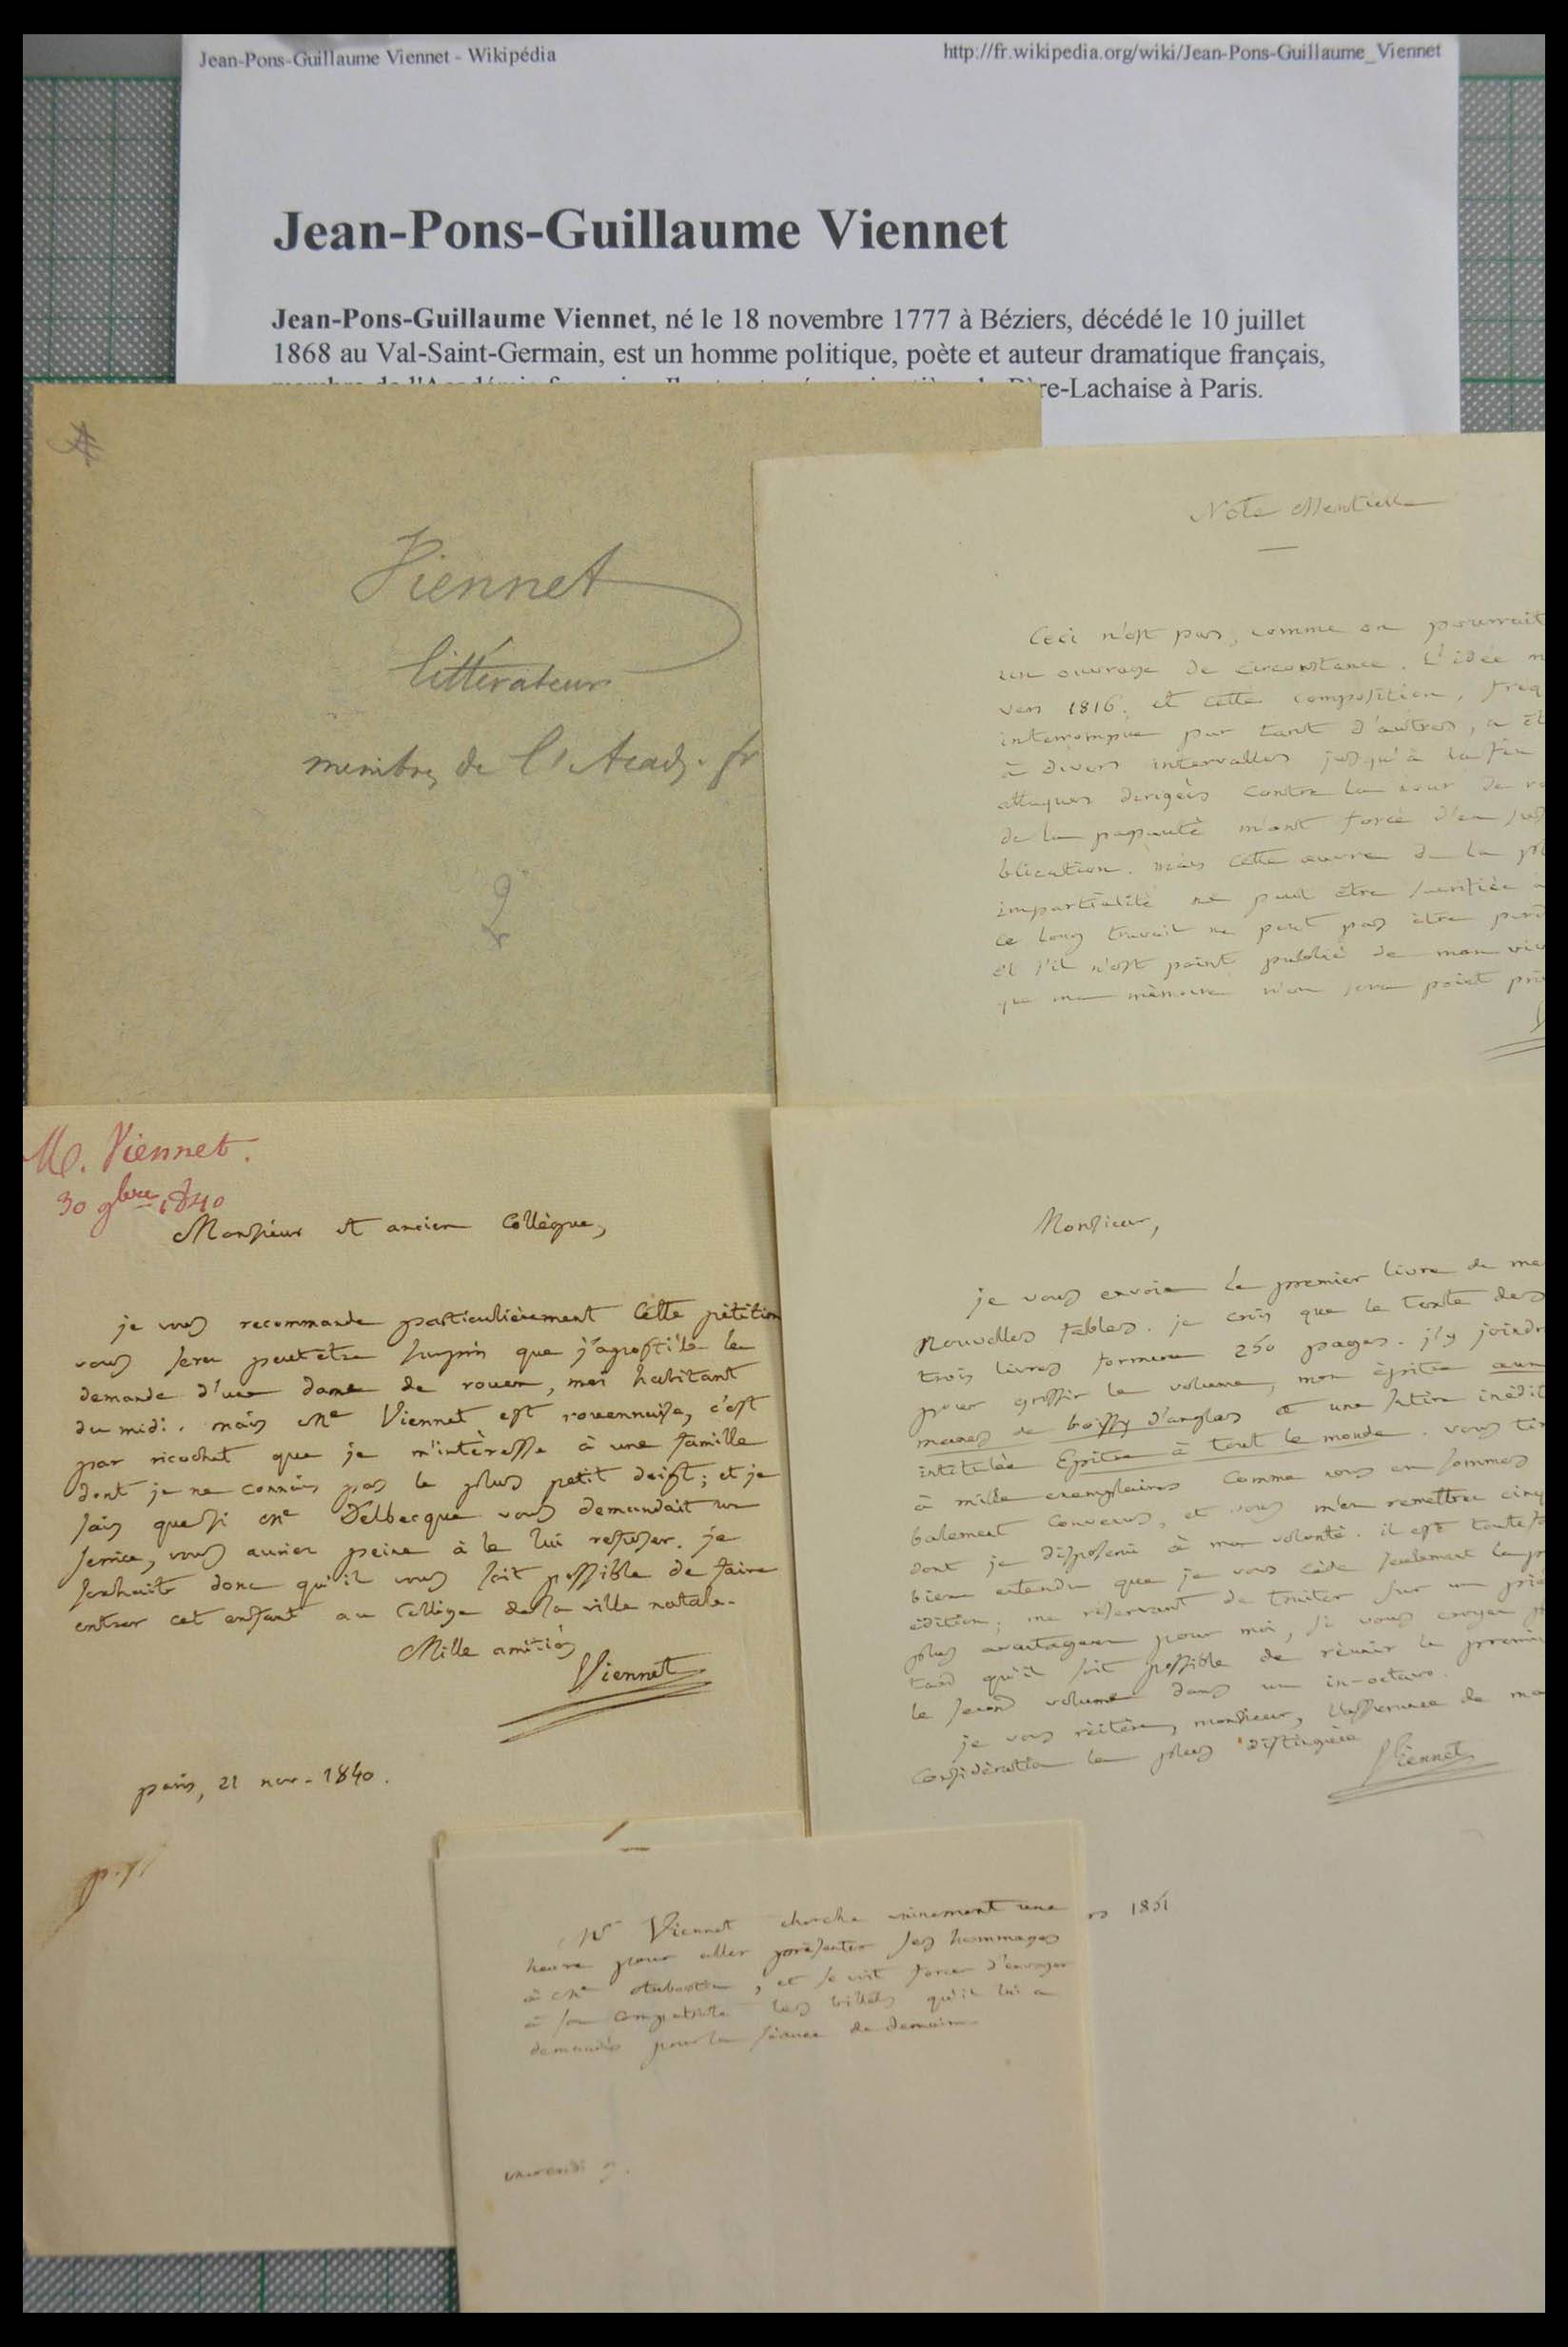 Jean-Pons-Guillaume Viennet - Wikipédia
http://fr.wikipedia.org/wiki/Jean-Pons-Guillaume_Viennet
Jean-Pons-Guillaume Viennet
Jean-Pons-Guillaume Viennet, né le 18 novembre 1777 à Béziers, décédé le 10 juillet
1868 au Val-Saint-Germain, est un homme politique, poète et auteur dramatique français,
Père-Lachaise à Paris.
Viennet
littérateur
membre de l'Acad. fr
2
Note essentielle
Ceci n'est pas, comme on pourrait
un ouvrage de circonstance. L'idée m
vers 1816. et cette composition, freq
interrompue par tant d'autres, a ét
à divers intervalles jusqu'à la fin
attaques dirigées contre la cour de ro
de la papauté m'ont forcé d'en sus
blication. mais cette œuvre de la pl
impartialité ne peut être sacrifiée à
ce long travail ne peut pas être perd
et s'il n'est point publié de mon viv
que ma mémoire n'en sera point pri
M. Viennet.
30 9bre 1840
Monsieur et ancien Collègue,
je vous recommande particulièrement cette pétition
vous serez peutetre surpris que j'apostille la
demande d'une dame de rouen, moi habitant
du midi. mais Me Viennet est rouennaise, c'est
par ricochet que je m'intéresse à une famille
dont je ne connais pas le plus petit doigt; et je
sais que si Me Delbecque vous demandait un
service, vous auriez peine à le lui refuser. je
souhaite donc qu'il vous soit possible de faire
entrer cet enfant au Collège de sa ville natale.
Mille amitiés
Viennet
paris, 21 nov. 1840.
Monsieur,
je vous envoie le premier livre de me
Nouvelles fables. je crois que le texte des
trois livres formera 250 pages. j'y joindr
pour grossir le volume, mon épitre aux
manes de boissy d'anglas et une satire inédit
intitulée Epitre à tout le monde. vous tir
à mille exemplaires comme nous en sommes
balement convenus, et vous m'en remettrez cinq
dont je disposerai à ma volonté. il est toutefo
bien entendu que je vous cède seulement la pr
édition; me réservant de traiter sur un pié
plus avantageux pour moi, si vous croyez pl
tard qu'il soit possible de réunir le premie
le second volume dans un in-octavo.
je vous réitère, monsieur, l'assurance de ma
Considération la plus distinguée
Viennet
rs 1851
Mr Viennet cherche vainement une
heure pour aller présenter ses hommages
à Me , et se voit forcé d'envoyer
à sa compatriote les billets qu'il lui a
demandés pour la séance de demain
mercredi